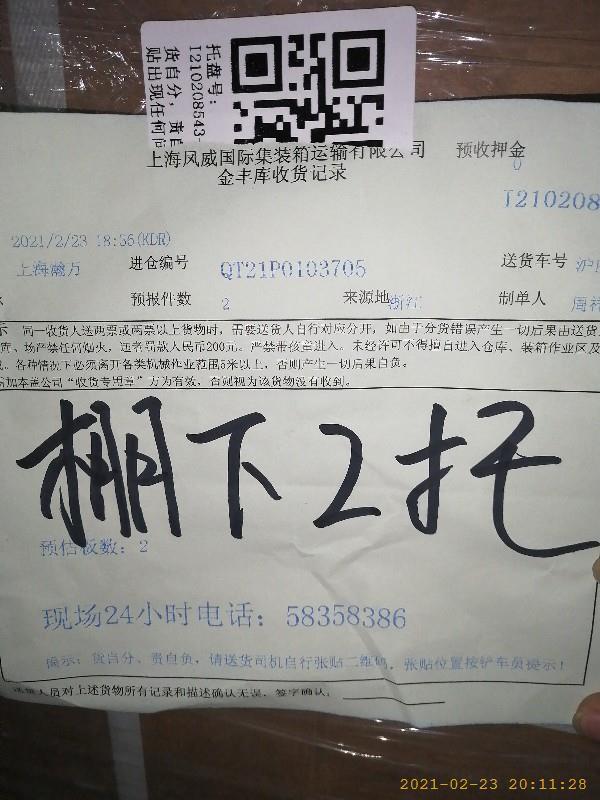 托盘号：
I210208543-
货自分，责自
贴出现任何问
上海风威国际集装箱运输有限公司 预收押金
金丰库收货记录 0
T210208
2021/2/23 18:56(KDR)
上海瀚万 进仓编号 QT21P0103705 送货车号 沪
预报件数 2 来源地 浙江 制单人 周祥
示 同一收货人送两票或两票以上货物时，需要送货人自行对应分开，如由于分货错误产生一切后果由送货
库、场严禁任何烟火，违者罚款人民币200元。严禁带孩童进入。未经许可不得擅自进入仓库、装箱作业区及
各种情况下必须离开各类机械作业范围5米以上，否则产生一切后果自负。
加本盖公司“收货专用章”方为有效，否则视为该货物没有收到。
棚下2托
预估板数：2
现场24小时电话：58358386
提示：货自分、责自负，请送货司机自行张贴二维码，张贴位置按铲车员提示！
人员对上述货物所有记录和描述确认无误，签字确认：
2021-02-23 20:11:28